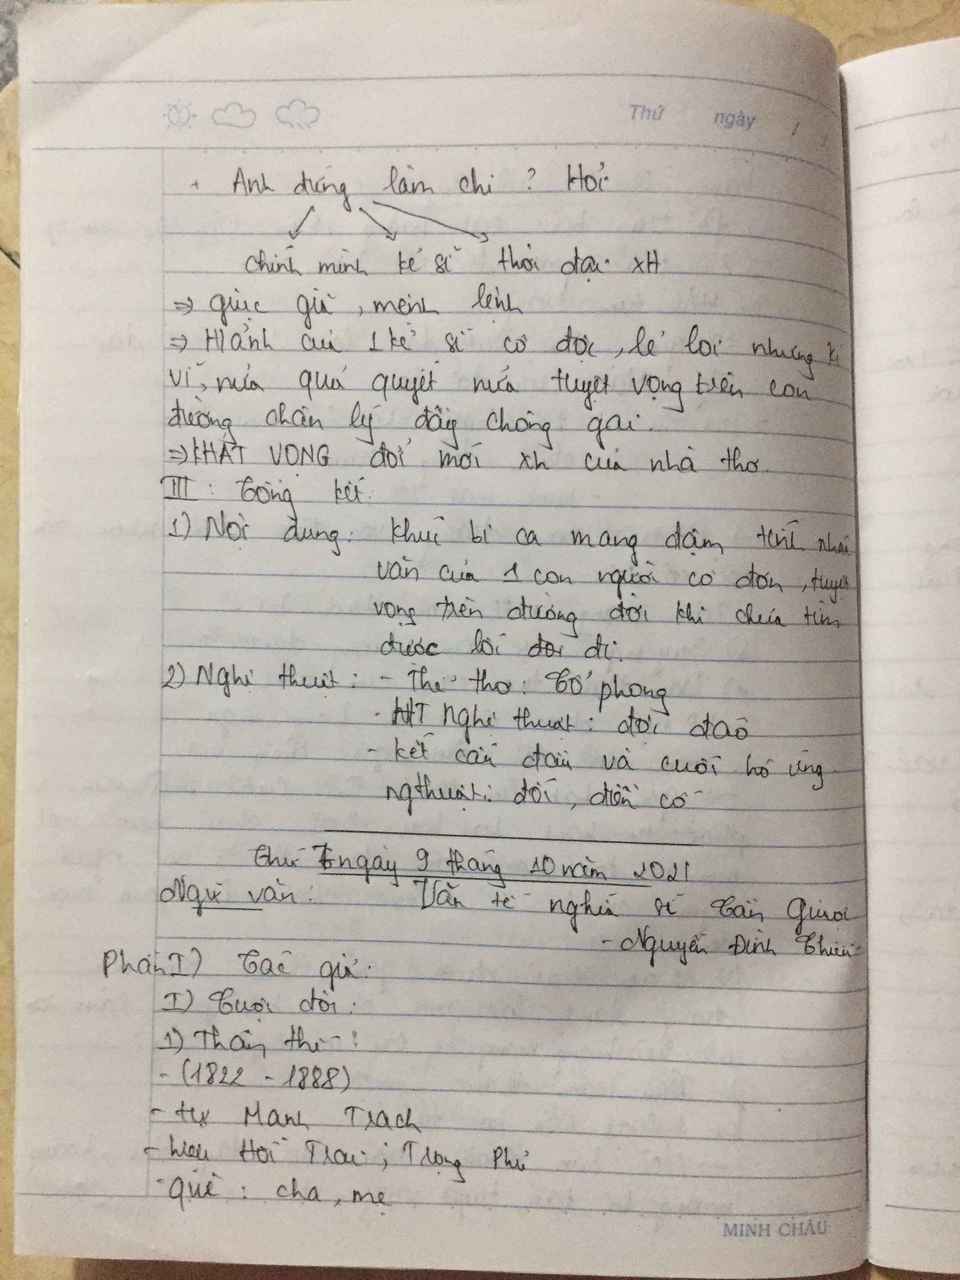 Thứ ngày / /
+ Anh đứng làm chi ? Hỏi
chính mình kẻ sĩ thời đại xH
=> giục giã, mệnh lệnh
=> H/ảnh của 1 kẻ sĩ cô độc, lẻ loi nhưng kì
vĩ, nửa quả quyết nửa tuyệt vọng trên con
đường chân lý đầy chông gai.
=> KHÁT VỌNG đổi mới xh của nhà thơ.
III : Tổng kết.
1) Nội dung: Khúc bi ca mang đậm tính nhân
văn của 1 con người cô đơn, tuyệt
vọng trên đường đời khi chưa tìm
được lối đi.
2) Nghệ thuật : - Thể thơ : Cổ phong
- HT nghệ thuật : độc đáo
- kết cấu đầu và cuối hô ứng
ngthuật: đối, điển cố
Thứ 7 ngày 9 tháng 10 năm 2021
Ngữ văn: Văn tế nghĩa sĩ Cần Giuộc
- Nguyễn Đình Chiểu -
Phần I) Tác giả:
I) Cuộc đời:
1) Thân thế :
- (1822 - 1888)
- tự Mạnh Trạch
- hiệu Hối Trai ; Trọng Phủ
- quê : cha, mẹ
MINH CHÂU